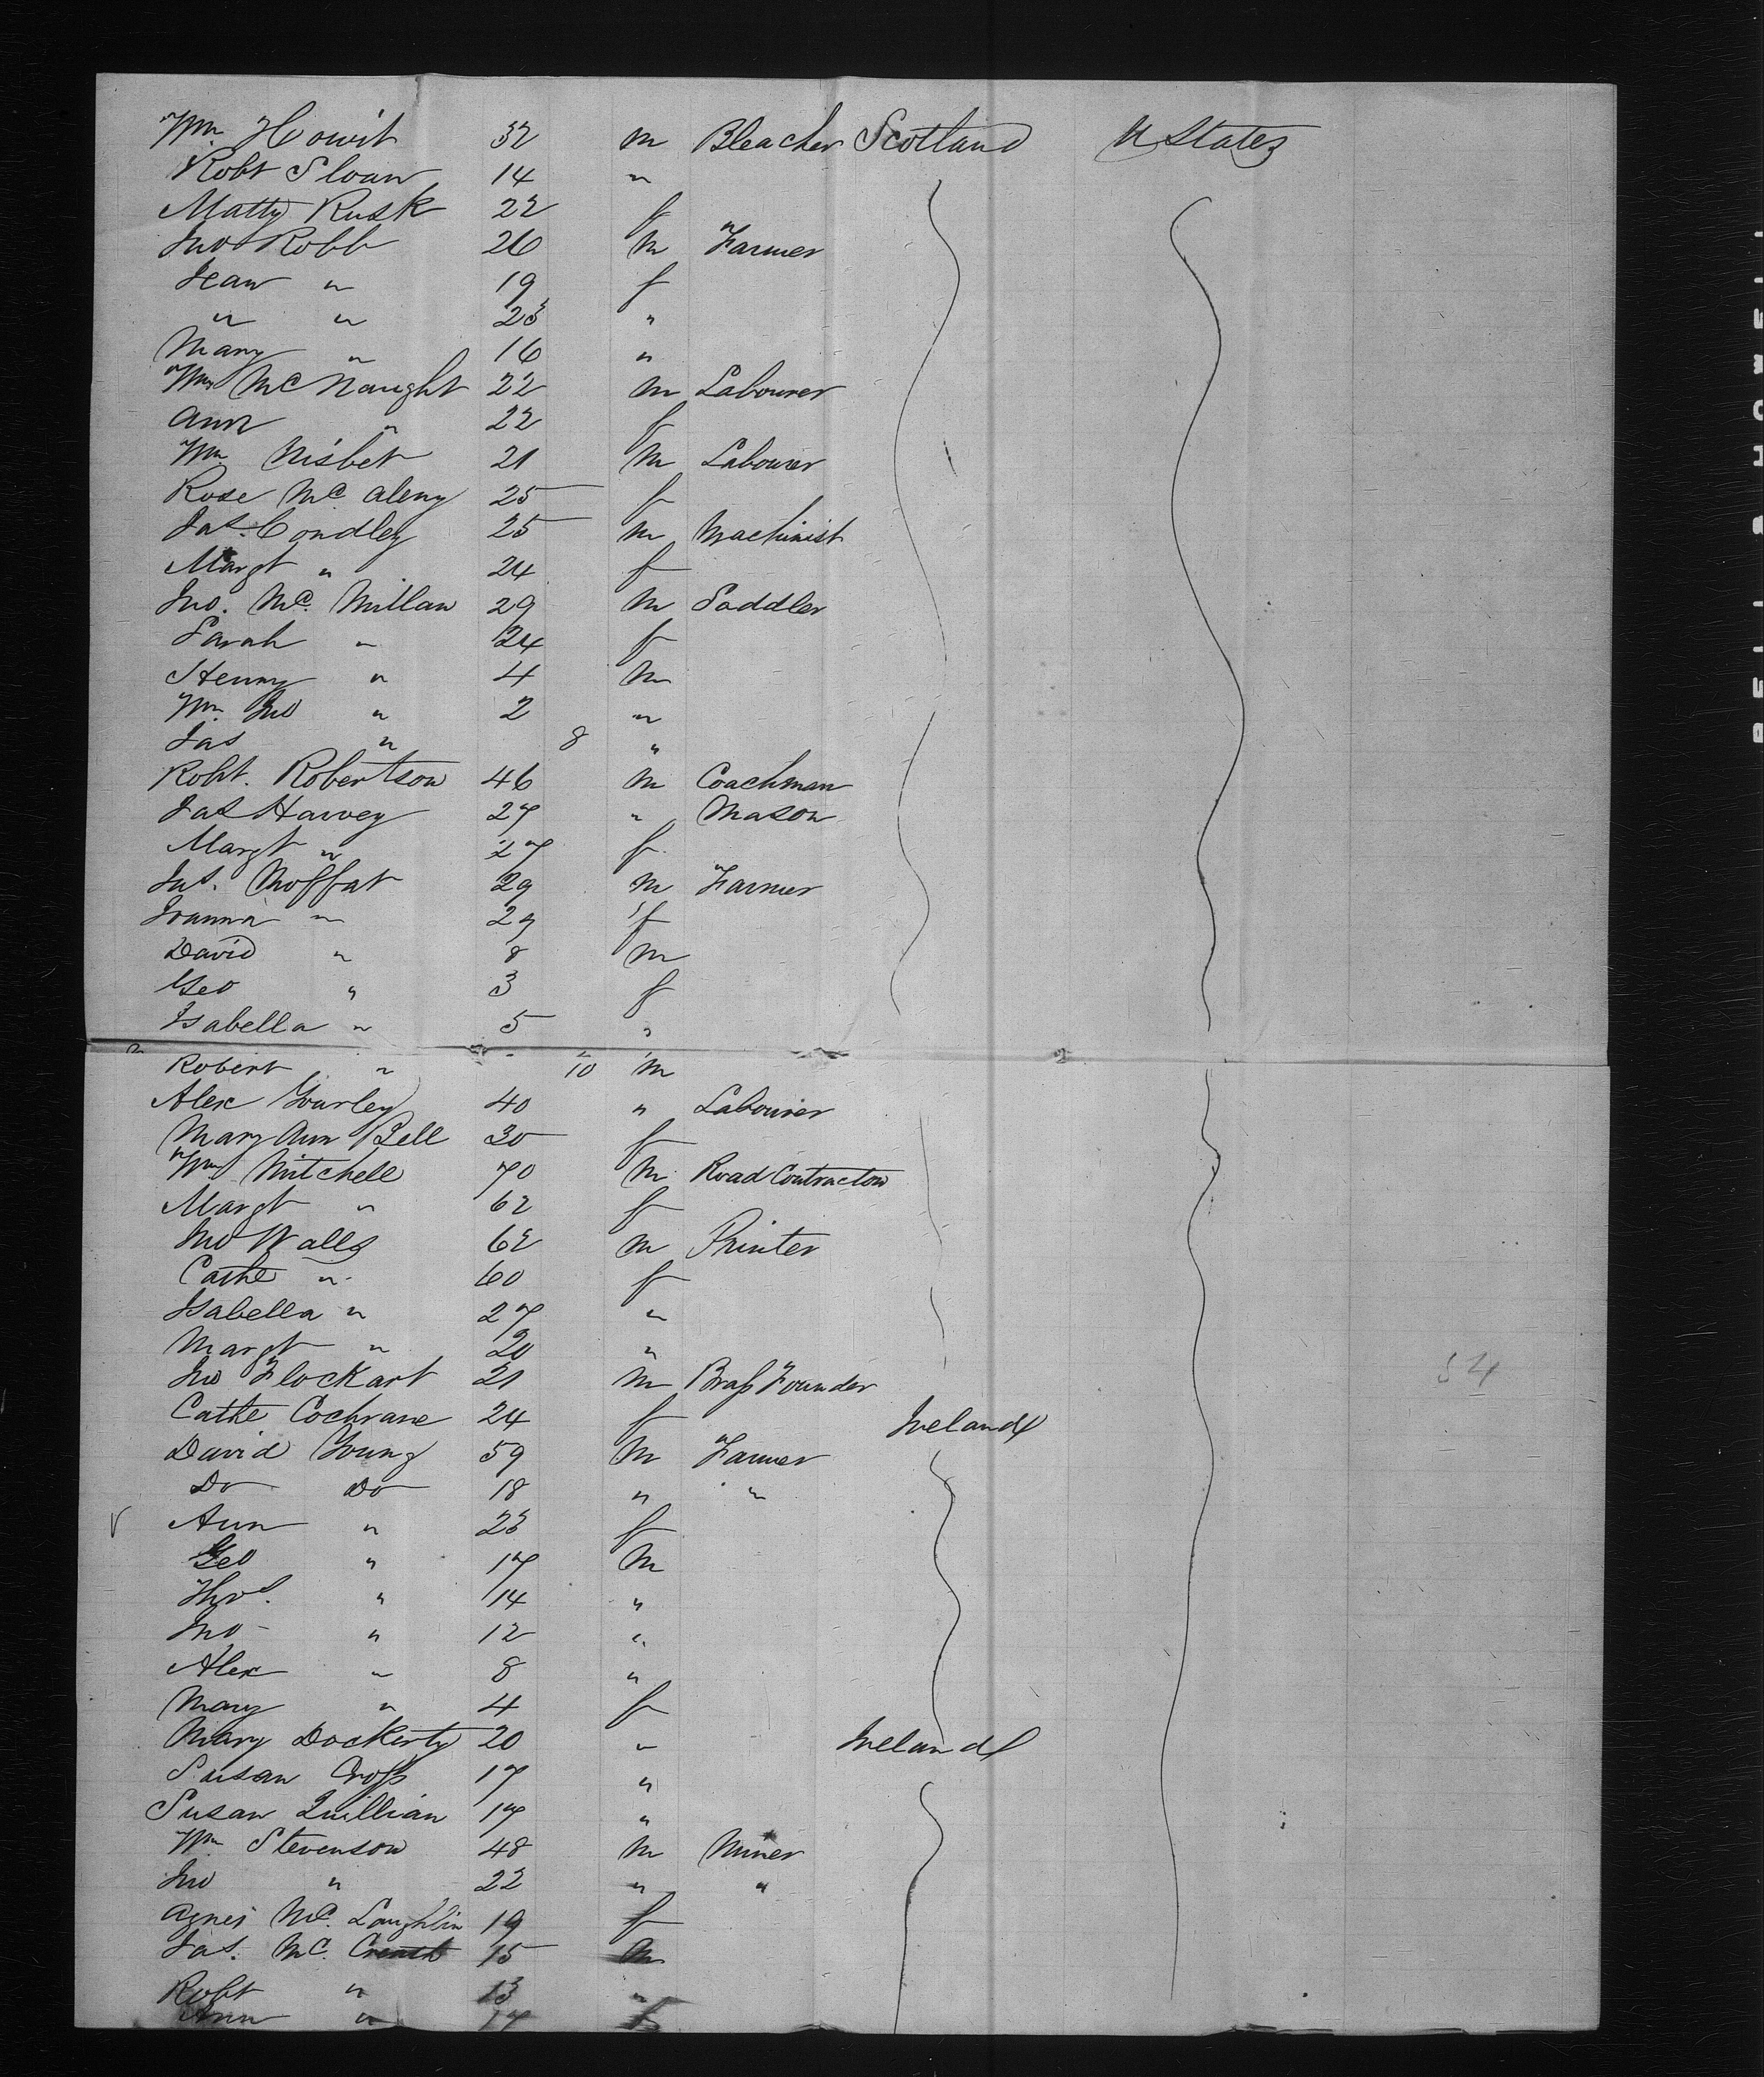 Wm Howit 32 m Bleacher Scotland U States
Robt Sloan 14 "
Matty Rusk 22 f
Jno Robb 26 m Farmer
Jean " 19 f
" " 23 "
Mary " 16 "
Wm McNaught 22 m Labourer
Ann " 22 f
Wm Nisbet 21 m Labourer
Rose Mc Aleny 25 f
Jas. Condley 25 m Machinist
Margt " 24 f
Jno. Mc. Millan 29 m Saddler
Sarah " 24 f
Henry " 4 m
Wm. Jno " 2 "
Jas " 8 "
Robt. Robertson 46 m Coachman
Jas Harvey 27 " Mason
Margt " 27 f
Jas. Moffat 29 m Farmer
Joanna " 29 f
David " 8 m
Geo " 3 f
Isabella " 5 "
Robert " 10 m
Alex Gourley 40 " Labourer
Mary Ann Bell 30 f
Wm Mitchell 70 m Road Contractor
Margt " 62 f
Jno Walls 62 m Printer
Cathe " 60 f
Isabella " 27 "
Margt " 20 "
Jno Flockart 21 m Brass Founder
54
Cathe Cochrane 24 f Ireland
David Young 59 m Farmer
Do Do 18 " "
Ann " 23 f
Geo " 17 m
Thos. " 14 "
Jno " 12 "
Alex " 8 "
Mary " 4 f
Mary Dockerty 20 " Ireland
Susan Cross 17 "
Susan Quillian 17 "
Wm Stevenson 48 m Miner
Jno " 22 " "
Agnes Mc. Laughlin 19 f
Jas. Mc. 15 m
Robt " 13 "
Ann " 17 f